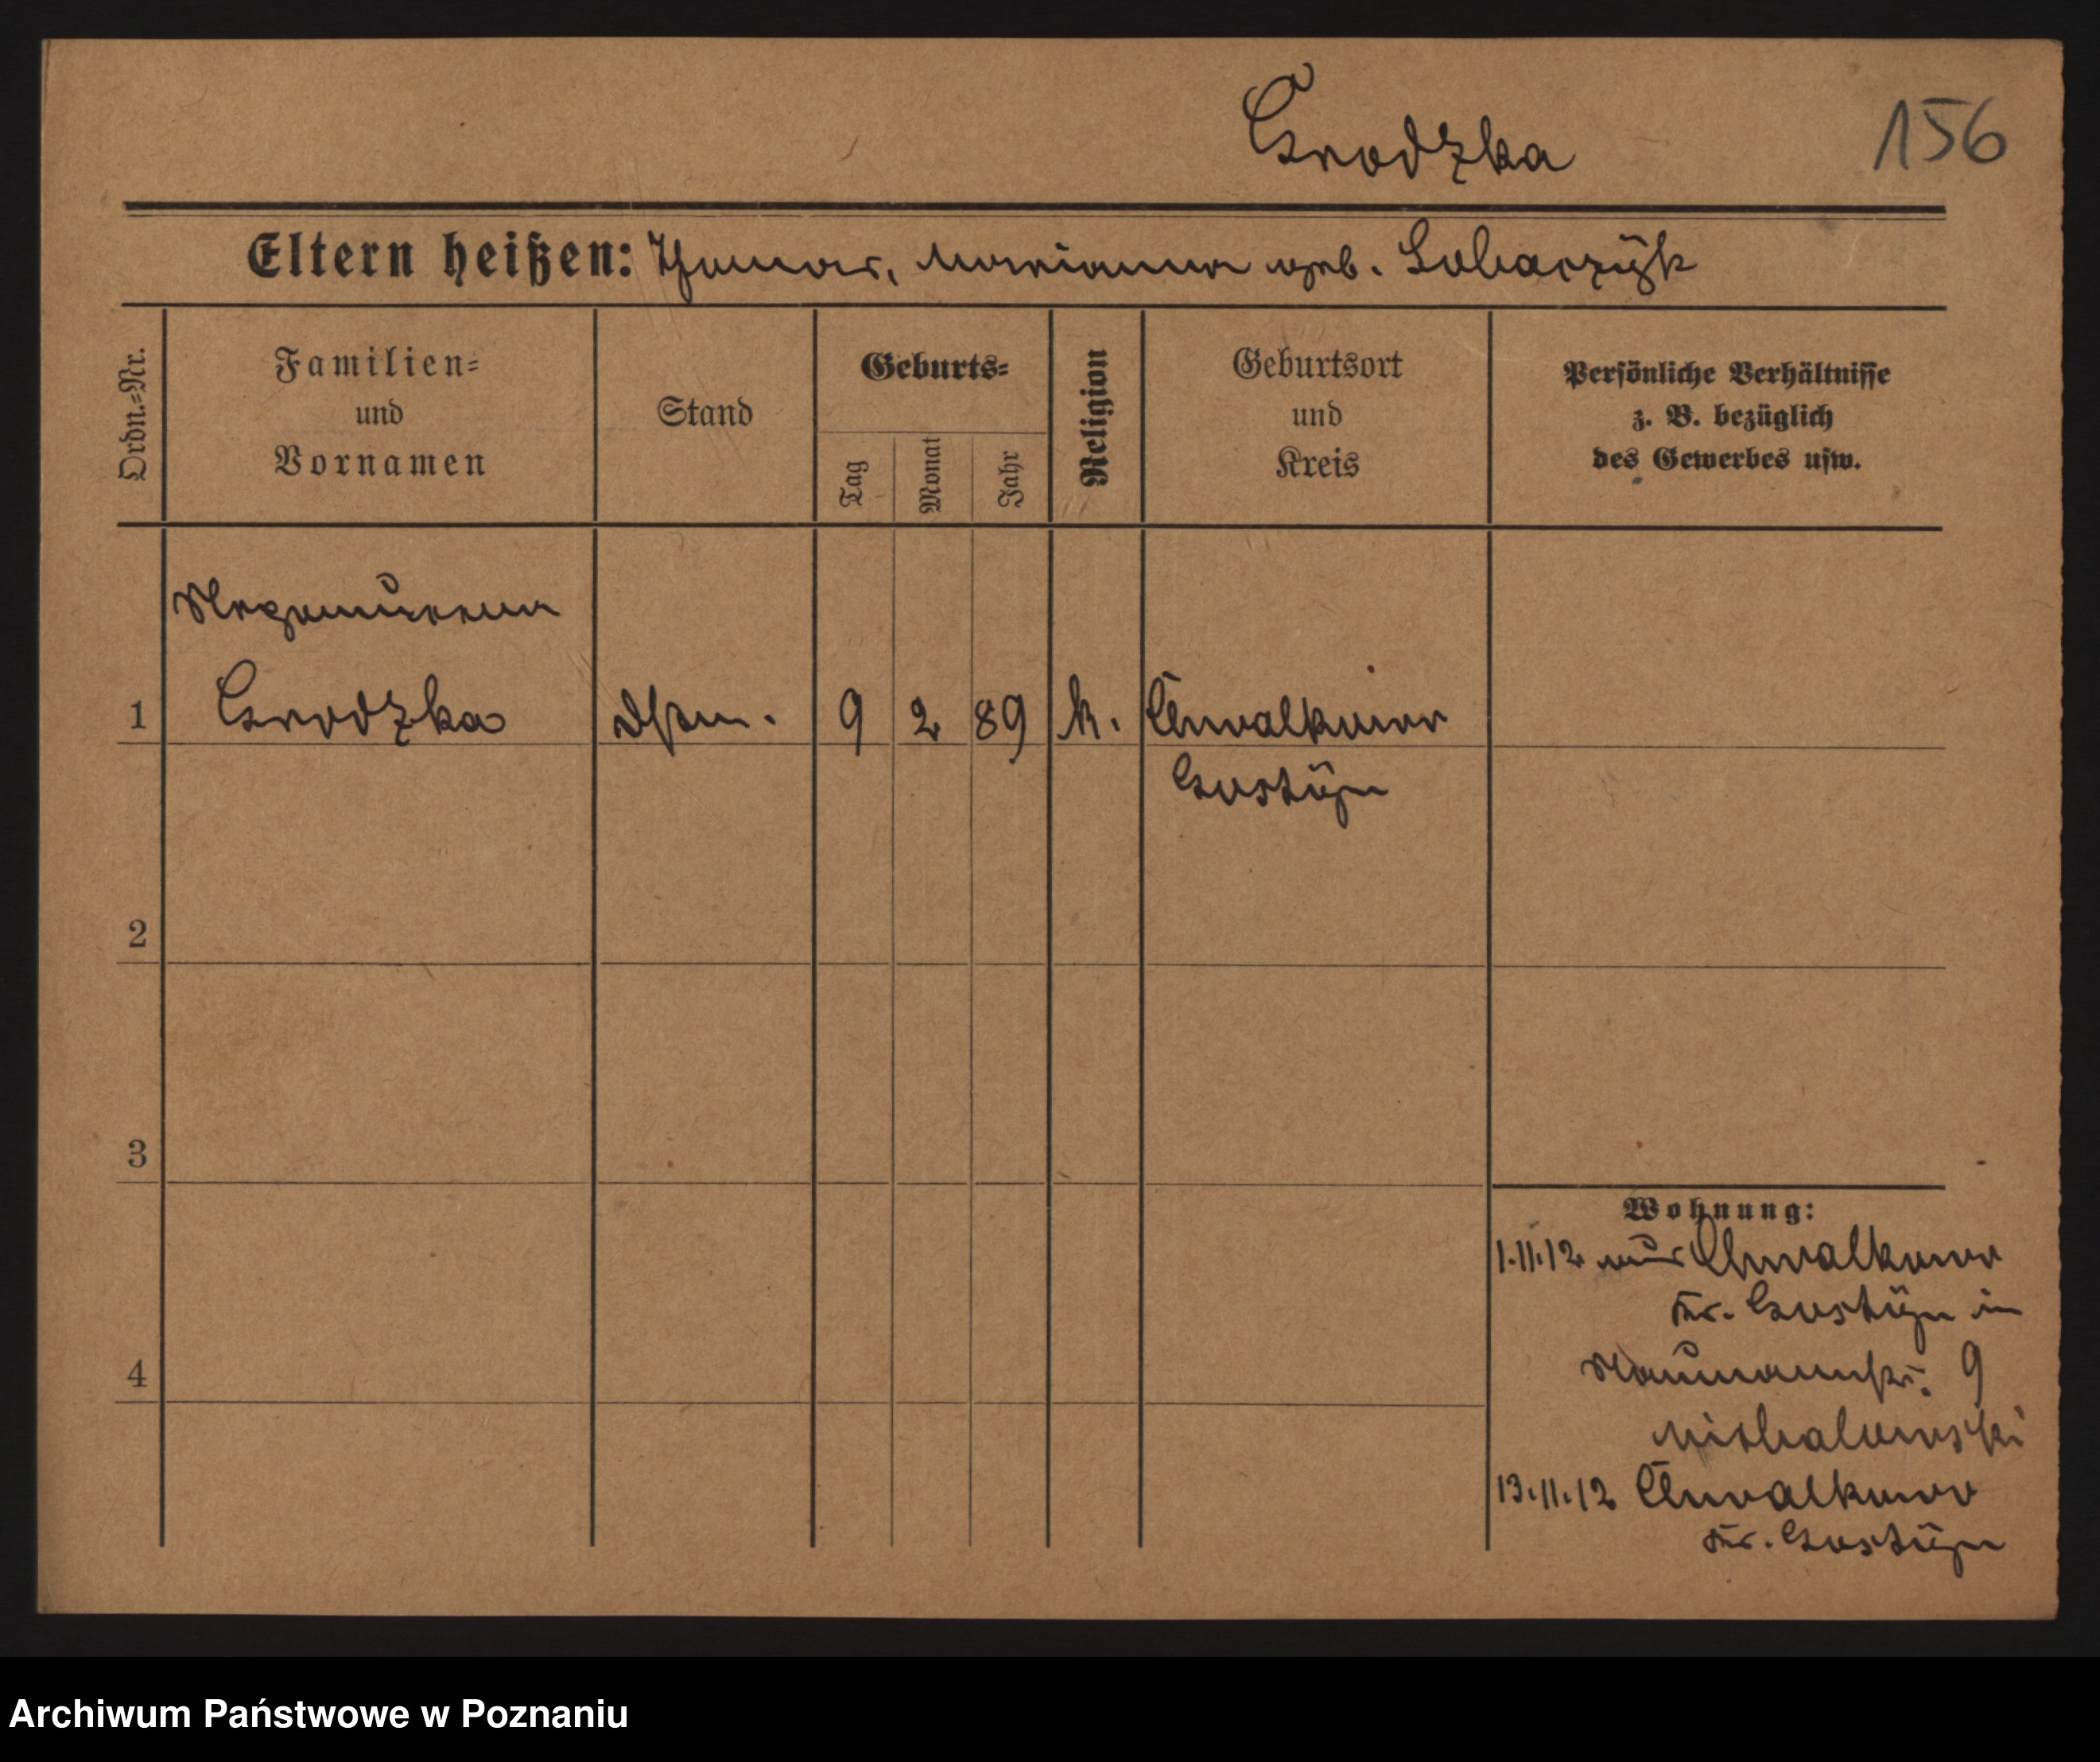 Grodzka
156
Eltern heißen: Thomas, Marianna geb. Sobaczÿk
Ordn.=Nr.
Familien=
und
Vornamen
Stand
Geburts=
Tag
Monat
Jahr
Religion
Geburtsort
und
Kreis
Persönliche Verhältnisse
z. B. bezüglich
des Gewerbes usw.
Nepomucena
1 Grodzka Dstm. 9 2 89 k. Chwalkowo
Gostÿn
2
3
4
Wohnung:
1.11.12 aus Chwalkowo
Kr. Gostÿn in
Naumannstr. 9
Michalowski
13.11.12 Chwalkowo
Kr. Gostÿn
Archiwum Państwowe w Poznaniu